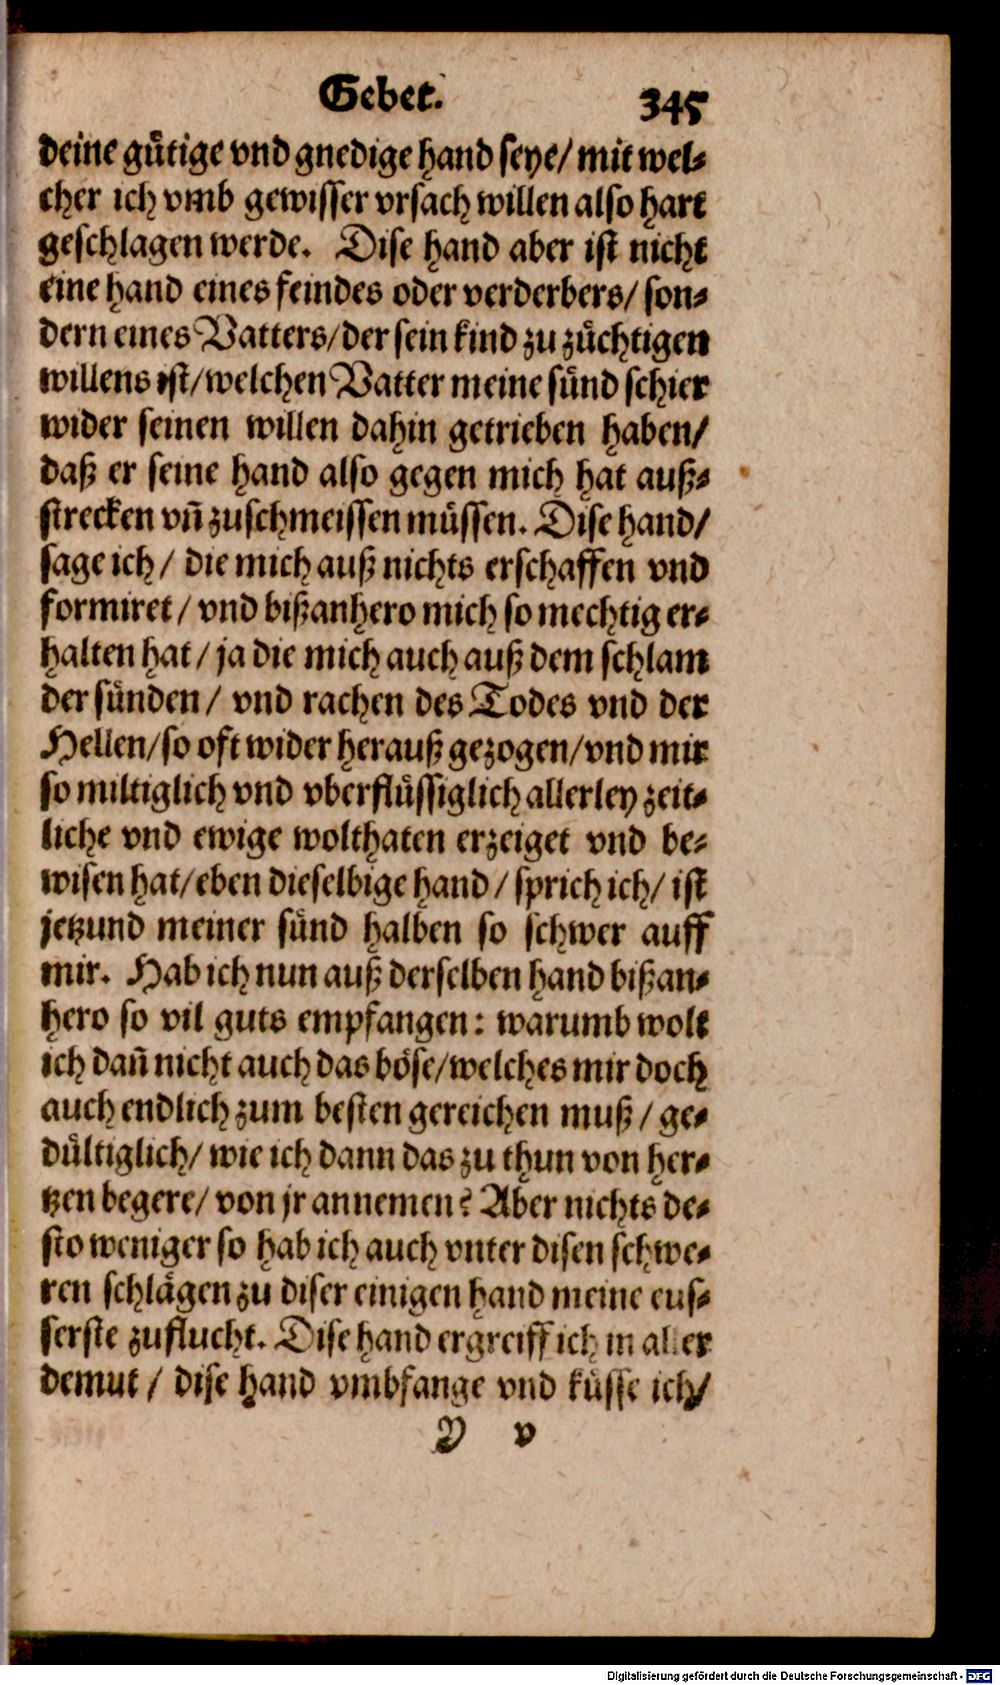 Gebet. 345
deine gütige vnd gnedige hand seye/ mit wel-
cher ich vmb gewisser vrsach willen also hart
geschlagen werde. Dise hand aber ist nicht
eine hand eines feindes oder verderbers/ son-
dern eines Vatters/ der sein kind zu züchtigen
willens ist/ welchen Vatter meine sünd schier
wider seinen willen dahin getrieben haben/
daß er seine hand also gegen mich hat auß-
strecken vñ zuschmeissen müssen. Dise hand/
sage ich/ die mich auß nichts erschaffen vnd
formiret/ vnd bißanhero mich so mechtig er-
halten hat/ ja die mich auch auß dem schlam
der sünden/ vnd rachen des Todes vnd der
Hellen/ so oft wider herauß gezogen/ vnd mir
so miltiglich vnd vberflüssiglich allerley zeit-
liche vnd ewige wolthaten erzeiget vnd be-
wisen hat/ eben dieselbige hand/ sprich ich/ ist
jetzund meiner sünd halben so schwer auff
mir. Hab ich nun auß derselben hand bißan-
hero so vil guts empfangen: warumb wolt
ich dañ nicht auch das böse/ welches mir doch
auch endlich zum besten gereichen muß/ ge-
dültiglich/ wie ich dann das zu thun von her-
tzen begere/ von jr annemen? Aber nichts de-
sto weniger so hab ich auch vnter disen schwe-
ren schlägen zu diser einigen hand meine eus-
serste zuflucht. Dise hand ergreiff ich in aller
demut/ dise hand vmbfange vnd küsse ich/
Y v
Digitalisierung gefördert durch die Deutsche Forschungsgemeinschaft - DFG